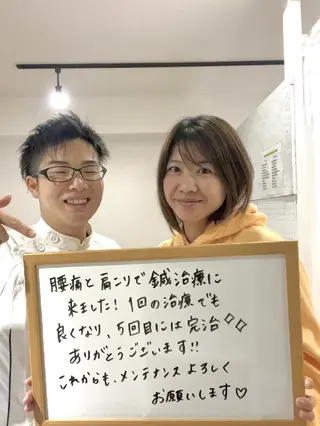 腰痛と肩こりで鍼治療に
来ました！1回の治療でも
良くなり、5回目には完治✧✧
ありがとうございます!!
これからも、メンテナンスよろしく
お願いします♡